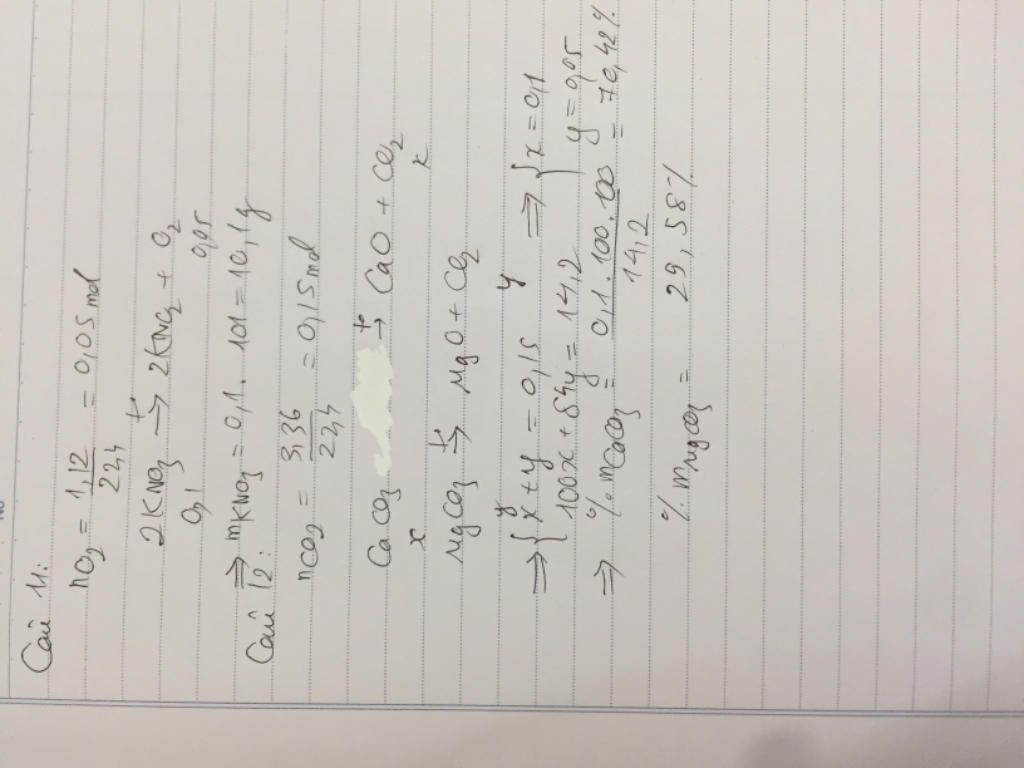 Câu 11:
nO2 = 1,12/22,4 = 0,05 mol
2KNO3 -t°-> 2KNO2 + O2
0,1 0,05
=> mKNO3 = 0,1 . 101 = 10,1g
Câu 12:
nCO2 = 3,36/22,4 = 0,15 mol
CaCO3 -t°-> CaO + CO2
x x
MgCO3 -t°-> MgO + CO2
y y
=> { x + y = 0,15 => { x = 0,1
100x + 84y = 14,2 y = 0,05
=> % mCaCO3 = 0,1.100.100/14,2 = 70,42%
% mMgCO3 = 29,58%